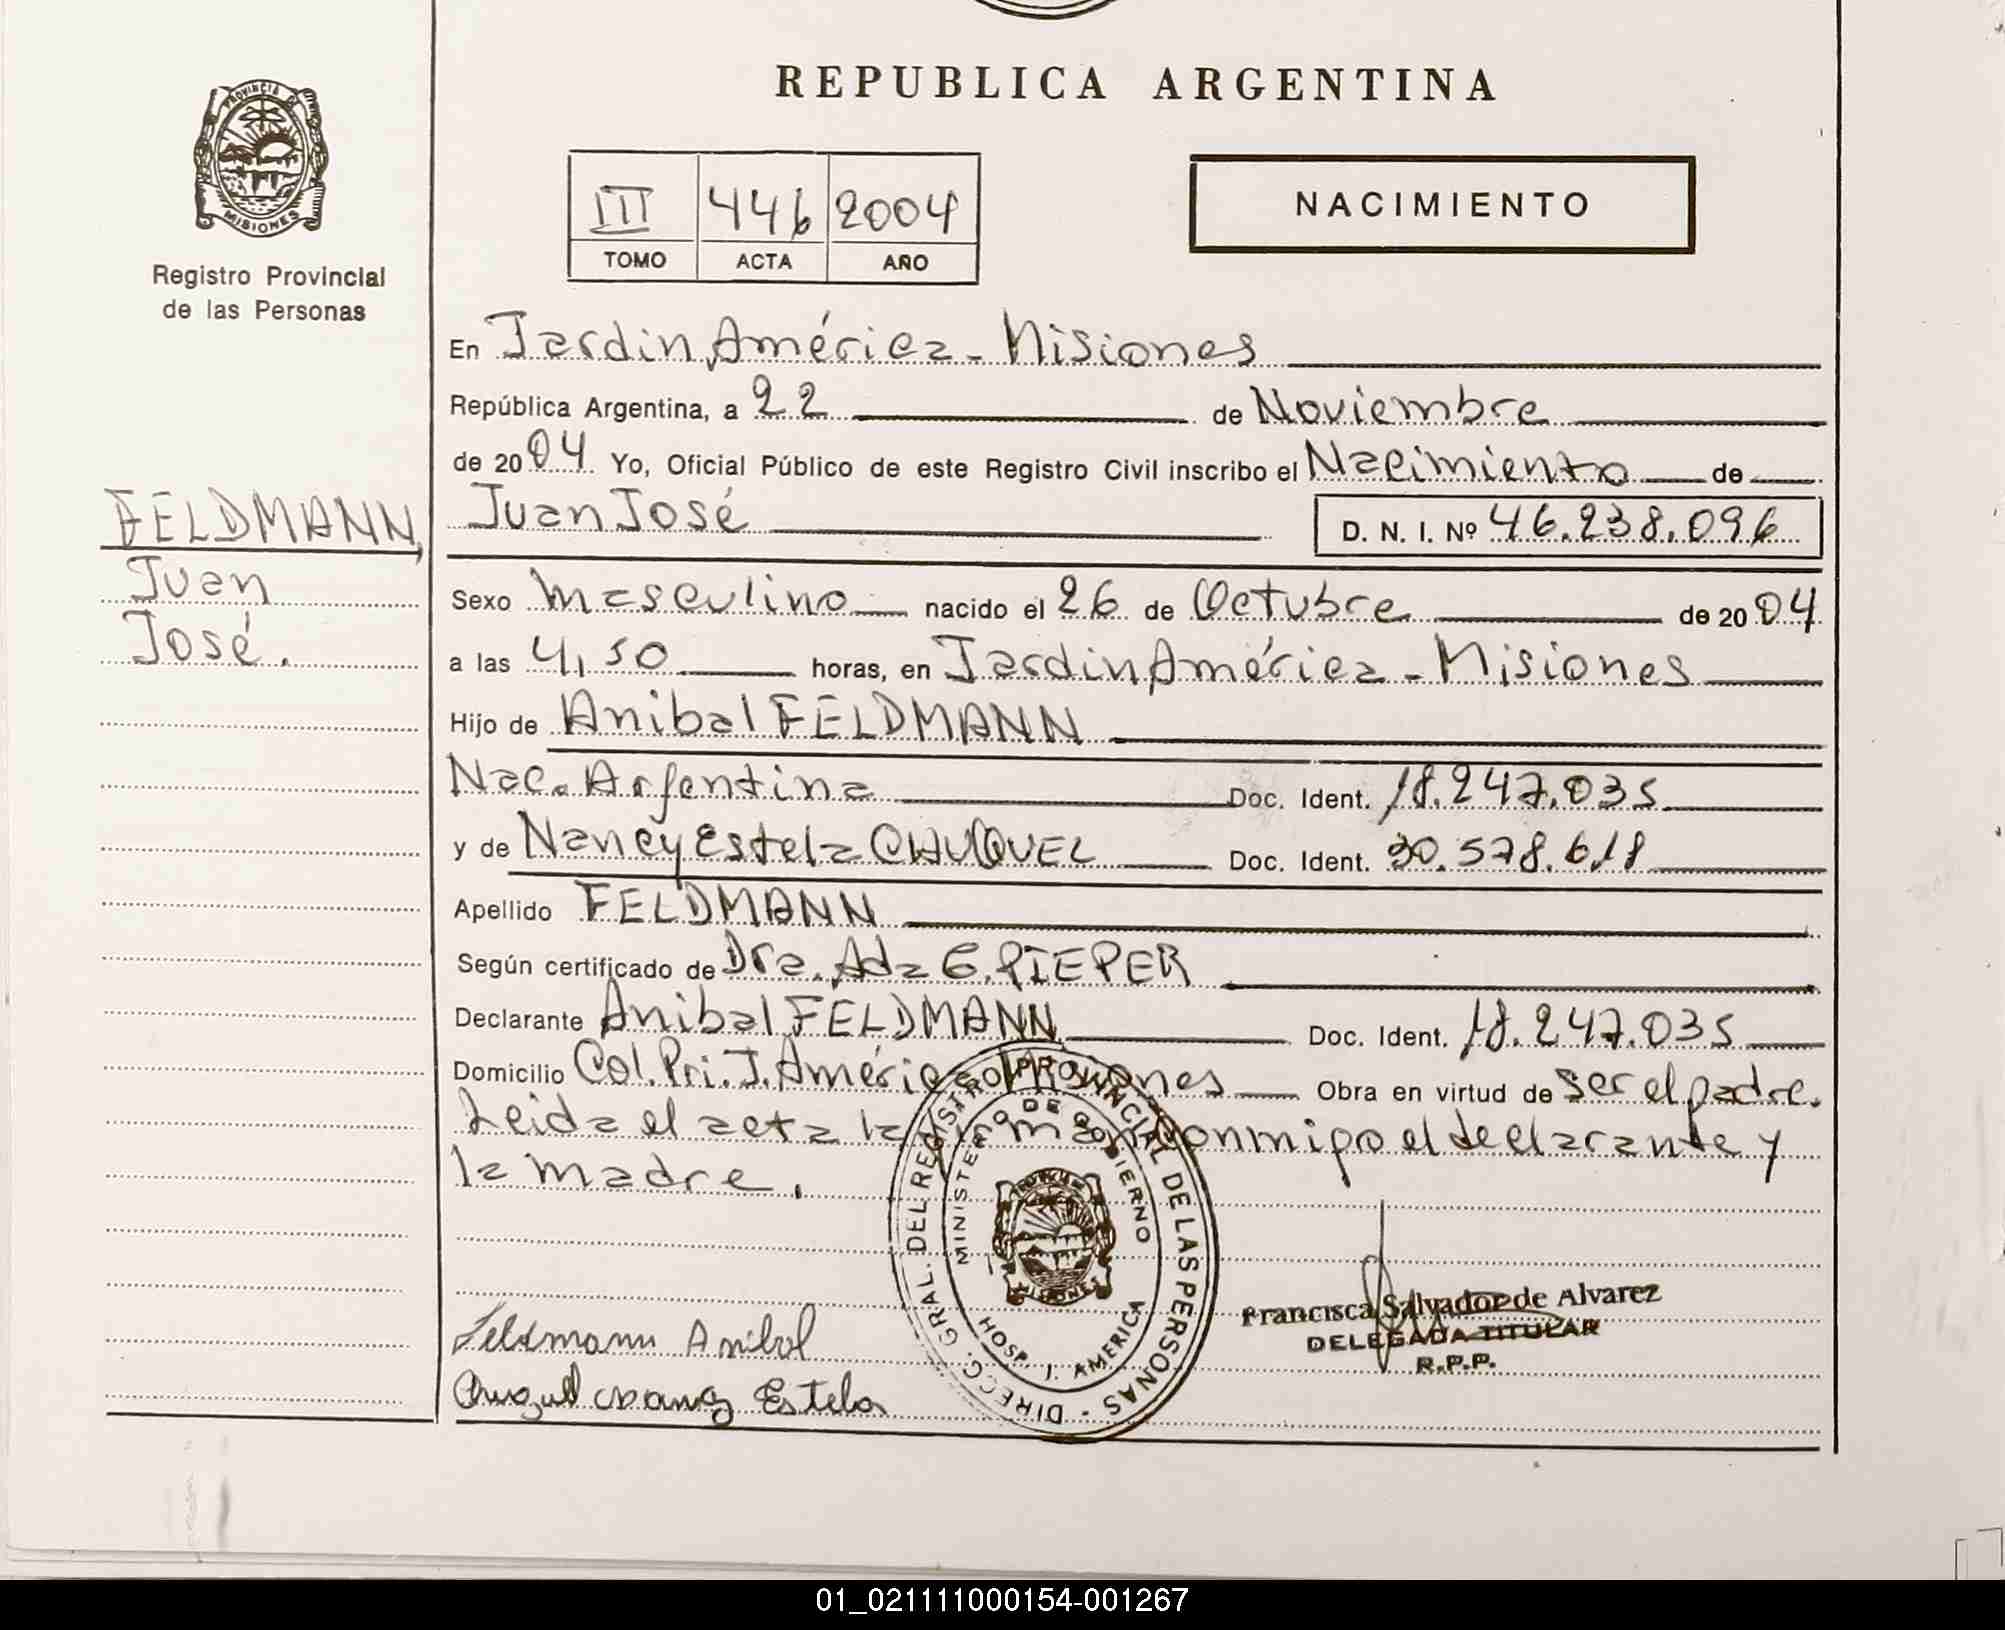 REPUBLICA ARGENTINA
PROVINCIA DE MISIONES
Registro Provincial
de las Personas
III 446 2004
TOMO ACTA AÑO
NACIMIENTO
En Jardin América - Misiones
República Argentina, a 22 de Noviembre
de 2004 Yo, Oficial Público de este Registro Civil inscribo el Nacimiento de
FELDMANN,
Juan
José.
Juan José D. N. I. Nº 46.238.096
Sexo Masculino nacido el 26 de Octubre de 2004
a las 4,50 horas, en Jardin América - Misiones
Hijo de Anibal FELDMANN
Nac. Argentina Doc. Ident. 18.247.035
y de Nancy Estela CHUQUEL Doc. Ident. 30.578.618
Apellido FELDMANN
Según certificado de Dra. Ada G. PIEPER
Declarante Anibal FELDMANN Doc. Ident. 18.247.035
Domicilio Col. Pri. J. América Misiones Obra en virtud de ser el padre.
Leida el acta la firman conmigo el declarante y
la madre.
DIRECC. GRAL. DEL REGISTRO PROVINCIAL DE LAS PERSONAS -
MINISTERIO DE GOBIERNO
MISIONES
HOSP. J. AMERICA
Francisca Salvador de Alvarez
DELEGADA TITULAR
R.P.P.
Feldmann Anibal
Estela
01_021111000154-001267